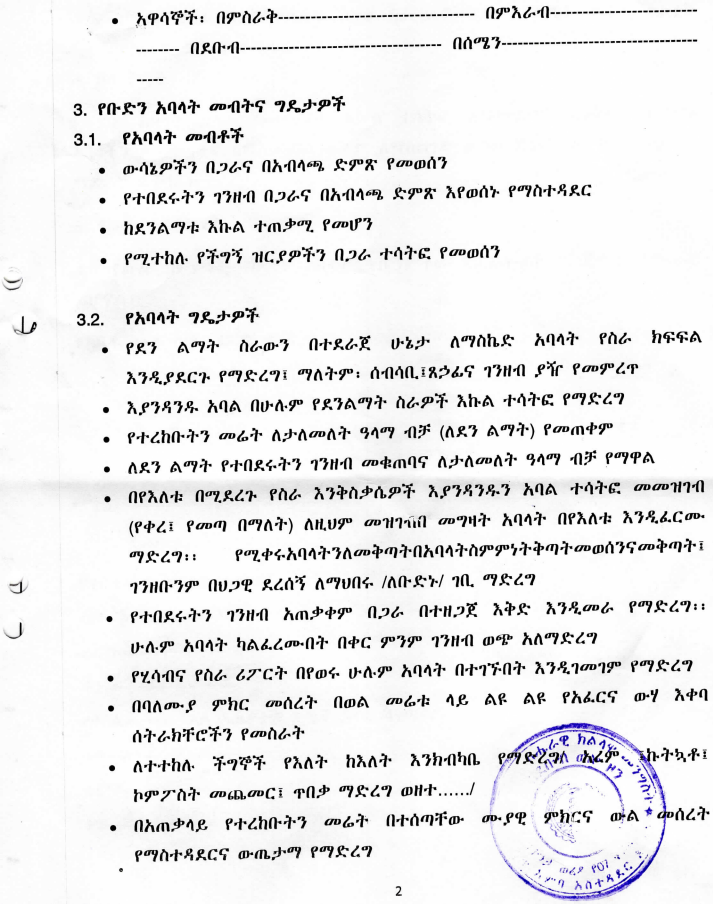 • አዋሳኞች፡ በምስራቅ----------------------------------- በምእራብ--------------------------
-------- በደቡብ------------------------------------ በሰሜን-----------------------------------
-----
3. የቡድን አባላት መብትና ግዴታዎች
3.1. የአባላት መብቶች
• ውሳኔዎችን በጋራና በአብላጫ ድምጽ የመወሰን
• የተበደሩትን ገንዘብ በጋራና በአብላጫ ድምጽ እየወሰኑ የማስተዳደር
• ከደንልማቱ እኩል ተጠቃሚ የመሆን
• የሚተከሉ የችግኝ ዝርያዎችን በጋራ ተሳትፎ የመወሰን
3.2. የአባላት ግዴታዎች
• የደን ልማት ስራውን በተደራጀ ሁኔታ ለማስኬድ አባላት የስራ ክፍፍል
እንዲያደርጉ የማድረግ፤ ማለትም፡ ሰብሳቢ፤ጸኃፊና ገንዘብ ያዥ የመምረጥ
• እያንዳንዱ አባል በሁሉም የደንልማት ስራዎች እኩል ተሳትፎ የማድረግ
• የተረከቡትን መሬት ለታለመለት ዓላማ ብቻ (ለደን ልማት) የመጠቀም
• ለደን ልማት የተበደሩትን ገንዘብ መቁጠባና ለታለመለት ዓላማ ብቻ የማዋል
• በየእለቱ በሚደረጉ የስራ እንቅስቃሴዎች እያንዳንዱን አባል ተሳትፎ መመዝገብ
(የቀረ፤ የመጣ በማለት) ለዚህም መዝገብ መግዛት አባላት በየእለቱ እንዲፈርሙ
ማድረግ፡፡ የሚቀሩአባላትንለመቅጣትበአባላትስምምነትቅጣትመወሰንናመቅጣት፤
ገንዘቡንም በህጋዊ ደረሰኝ ለማህበሩ /ለቡድኑ/ ገቢ ማድረግ
• የተበደሩትን ገንዘብ አጠቃቀም በጋራ በተዘጋጀ እቅድ እንዲመራ የማድረግ፡፡
ሁሉም አባላት ካልፈረሙበት በቀር ምንም ገንዘብ ወጭ አለማድረግ
• የሂሳብና የስራ ሪፖርት በየወሩ ሁሉም አባላት በተገኙበት እንዲገመገም የማድረግ
• በባለሙያ ምክር መሰረት በወል መሬቱ ላይ ልዩ ልዩ የአፈርና ውሃ እቀባ
ሰትራክቸሮችን የመስራት
• ለተተከሉ ችግኞች የእለት ከእለት እንክብካቤ የማድረግ/ አረም ፤ኩትኳቶ፤
ኮምፖስት መጨመር፤ ጥበቃ ማድረግ ወዘተ....../
• በአጠቃላይ የተረከቡትን መሬት በተሰጣቸው ሙያዊ ምክርና ውል መሰረት
የማስተዳደርና ውጤታማ የማድረግ
2